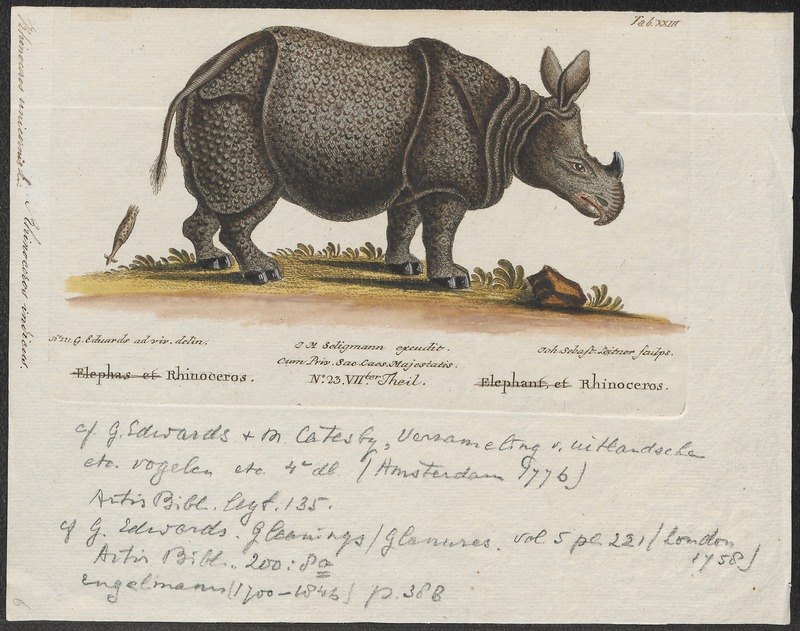 Tab. XXIII
Rhinoceros unicornis L. Rhinoceros indicus.
No. 221. G. Edwards ad viv. delin.
J. M. Seligmann excudit.
Joh. Sebast. Leitner sculps.
Cum Priv. Sac. Caes. Majestatis.
Elephas et Rhinoceros.
No. 23. VIIter Theil.
Elephant, et Rhinoceros.
cf G. Edwards + M. Catesby, Verzameling v. uitlandsche
etc. vogelen etc. 4e dl (Amsterdam 1776)
Artis Bibl. legt. 135.
cf G. Edwards. Gleanings/Glanures. vol 5 pl. 221 (London
1758)
Artis Bibl. 200: 8a
Engelmann (1700-1846) p. 388
6